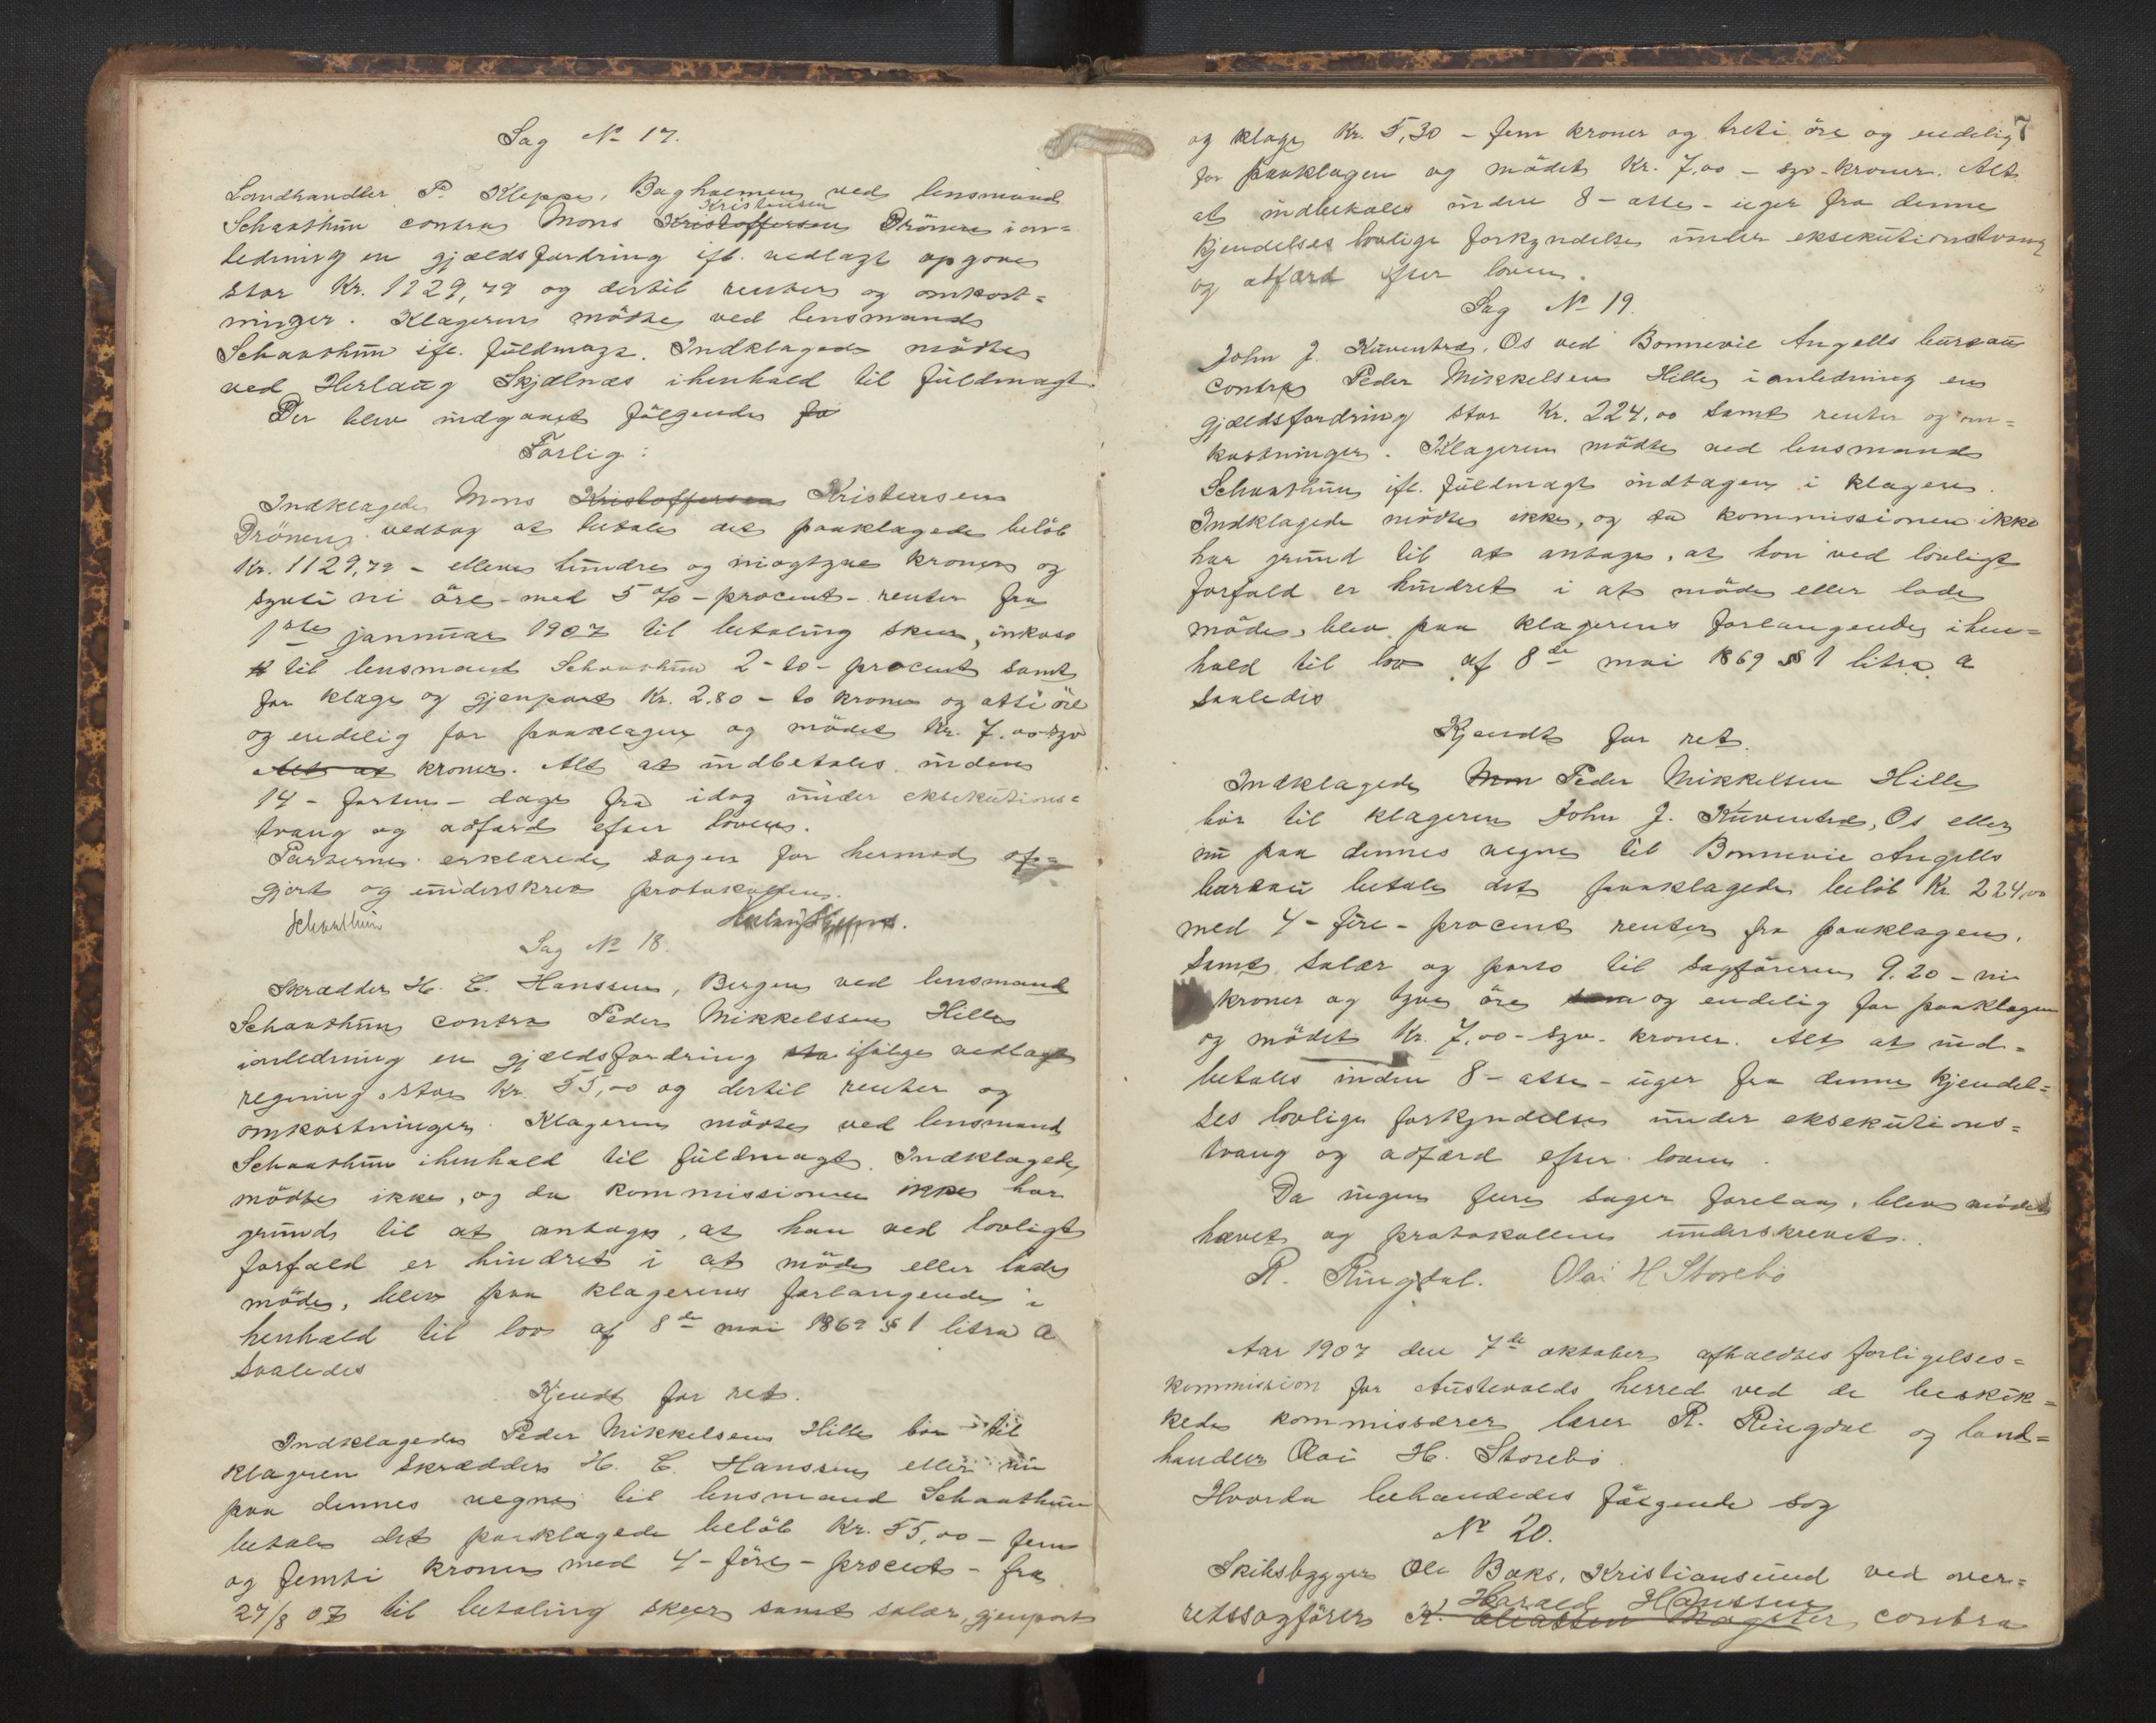 Sag No 17.
Landhandler P. Kleppe, Bagholmen ved lensmand
Kristensen
Schaathun contra Mons Kristoffersen Drönen i an=
ledning en gjældsfordring ifl. vedlagt opgave
stor Kr. 1129,79 og dertil renter og omkost=
ninger. Klageren mödte ved lensmand
Schaathun ifl. fuldmagt. Indklagede mödte
ved Herlaug Skjælnæs ihenhold til fuldmagt.
Der blev indgaaet fölgende fo
Forlig:
Indklagede Mons Kristoffersen Kristensen
Drönen vedtog at betale det paaklagede belöb
Kr. 1129,79 - elleve hundre og niogtyve kroner og
sytti ni öre - med 5 % - procent - renter fra
1ste januar 1907 til betaling skeer, inkaso
til lensmand Schaathun 2 - to - procent samt
for klage og gjenpart Kr. 2.80 - to kroner og otti öre
og endelig for paaklagen og mödet Kr. 7.00 syv
Alt at kroner. Alt at indbetales inden
14 - fjorten - dage fra idag under eksekutions=
tvang og adfærd efter loven.
Parterne erklærede sagen for hermed op=
gjort og underskrev protokollen.
Schaathun
Sag No 18.
Skrædder H. C. Hanssen, Bergen ved lensmand
Schaathun contra Peder Mikkelssen Hille
ianledning en gjældsfordring sto ifölge vedlagt
regning stor Kr. 55,00 og dertil renter og
omkostninger. Klageren mödte ved lensmand
Schaathun ihenhold til fuldmagt. Indklagede
mödte ikke, og da kommissionen ikke har
grund til at antage, at han ved lovligt
forfald er hindret i at möde eller lade
möde, blev paa klagerens forlangende i
henhold til lov af 8de mai 1869 § 1 litra a
saaledes
Kjendt for ret.
Indklagede Peder Mikkelsen Hille bör til
klageren Skrædder H. C. Hanssen eller nu
paa dennes vegne til lensmand Schaathun
betale det paaklagede belöb Kr. 55,00 - fem
og femti kroner med 4 - fire - procent - fra
27/8 07 til betaling skeer samt salær, gjenpart
7
og klage Kr. 5,30 - fem kroner og treti öre og endelig
for paaklagen og mödet Kr. 7,00 - syv - kroner. Alt
at indbetales inden 8 - otte - uger fra denne
kjendelses lovlige forkyndelse under eksekutionstvang
og adfærd efter loven.
Sag No 19.
John J. Kuventræ, Os ved Bonnevie Angells bureau
contra Peder Mikkelsen Hille i anledning en
gjældsfordring stor Kr. 224,00 samt renter og om=
kostninger. Klageren mödte ved lensmand
Schaathun ifl. fuldmagt indtagen i klagen.
Indklagede mödte ikke, og da kommissionen ikke
har grund til at antage, at han ved lovligt
forfald er hindret i at möde eller lade
möde, blev paa klagerens forlangende ihen=
hold til lov af 8de mai 1869 § 1 litra a
saaledes
Kjendt for ret.
Indklagede Mon Peder Mikkelsen Hille
bör til klageren John J. Kuventræ, Os eller
nu paa dennes vegne til Bonnevie Angells
bureau betale det paaklagede belöb Kr 224,00
med 4 - fire - procent renter fra paaklagen.
Samt salær og porto til sagföreren 9.20 - ni
kroner og tyve öre sam og endelig for paaklagen
og mödet Kr. 7,00 - syv - kroner. Alt at ind=
betales inden 8 - otte - uger fra denne kjendel=
ses lovlige forkyndelse under eksekutions=
tvang og adfærd efter loven.
Da ingen flere sager forelaa, blev mödet
hævet og protokollen underskrevet.
R. Ringdal. Olai H Storebö
Aar 1907 den 7de oktober afholdtes forligelses=
kommission for Austevolds herred ved de beskik=
kede kommissærer lærer R. Ringdal og land=
handler Olai H. Storebö.
Hvorda behandledes fölgende sag
No 20.
Skibsbygger Ole Boks, Kristiansund ved over=
Harald Hanssen
retssagförer K. contra